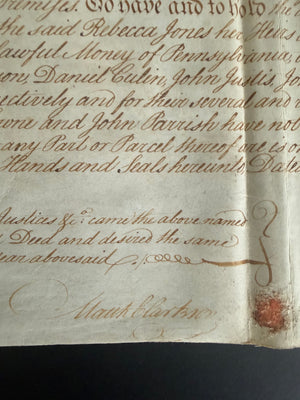 remises. To have and to hold the
the said Rebecca Jones her Heirs
lawful Money of Pennsylvania,
son, Daniel Culin, John Justis, J
ectively and for their several and
wne and John Parrish have not
any Part or Parcel thereof are is or
Hands and Seals hereunto, Dated
Justices &c. came the above named
Deed and desired the same
ear abovesaid
Matth Clarkson